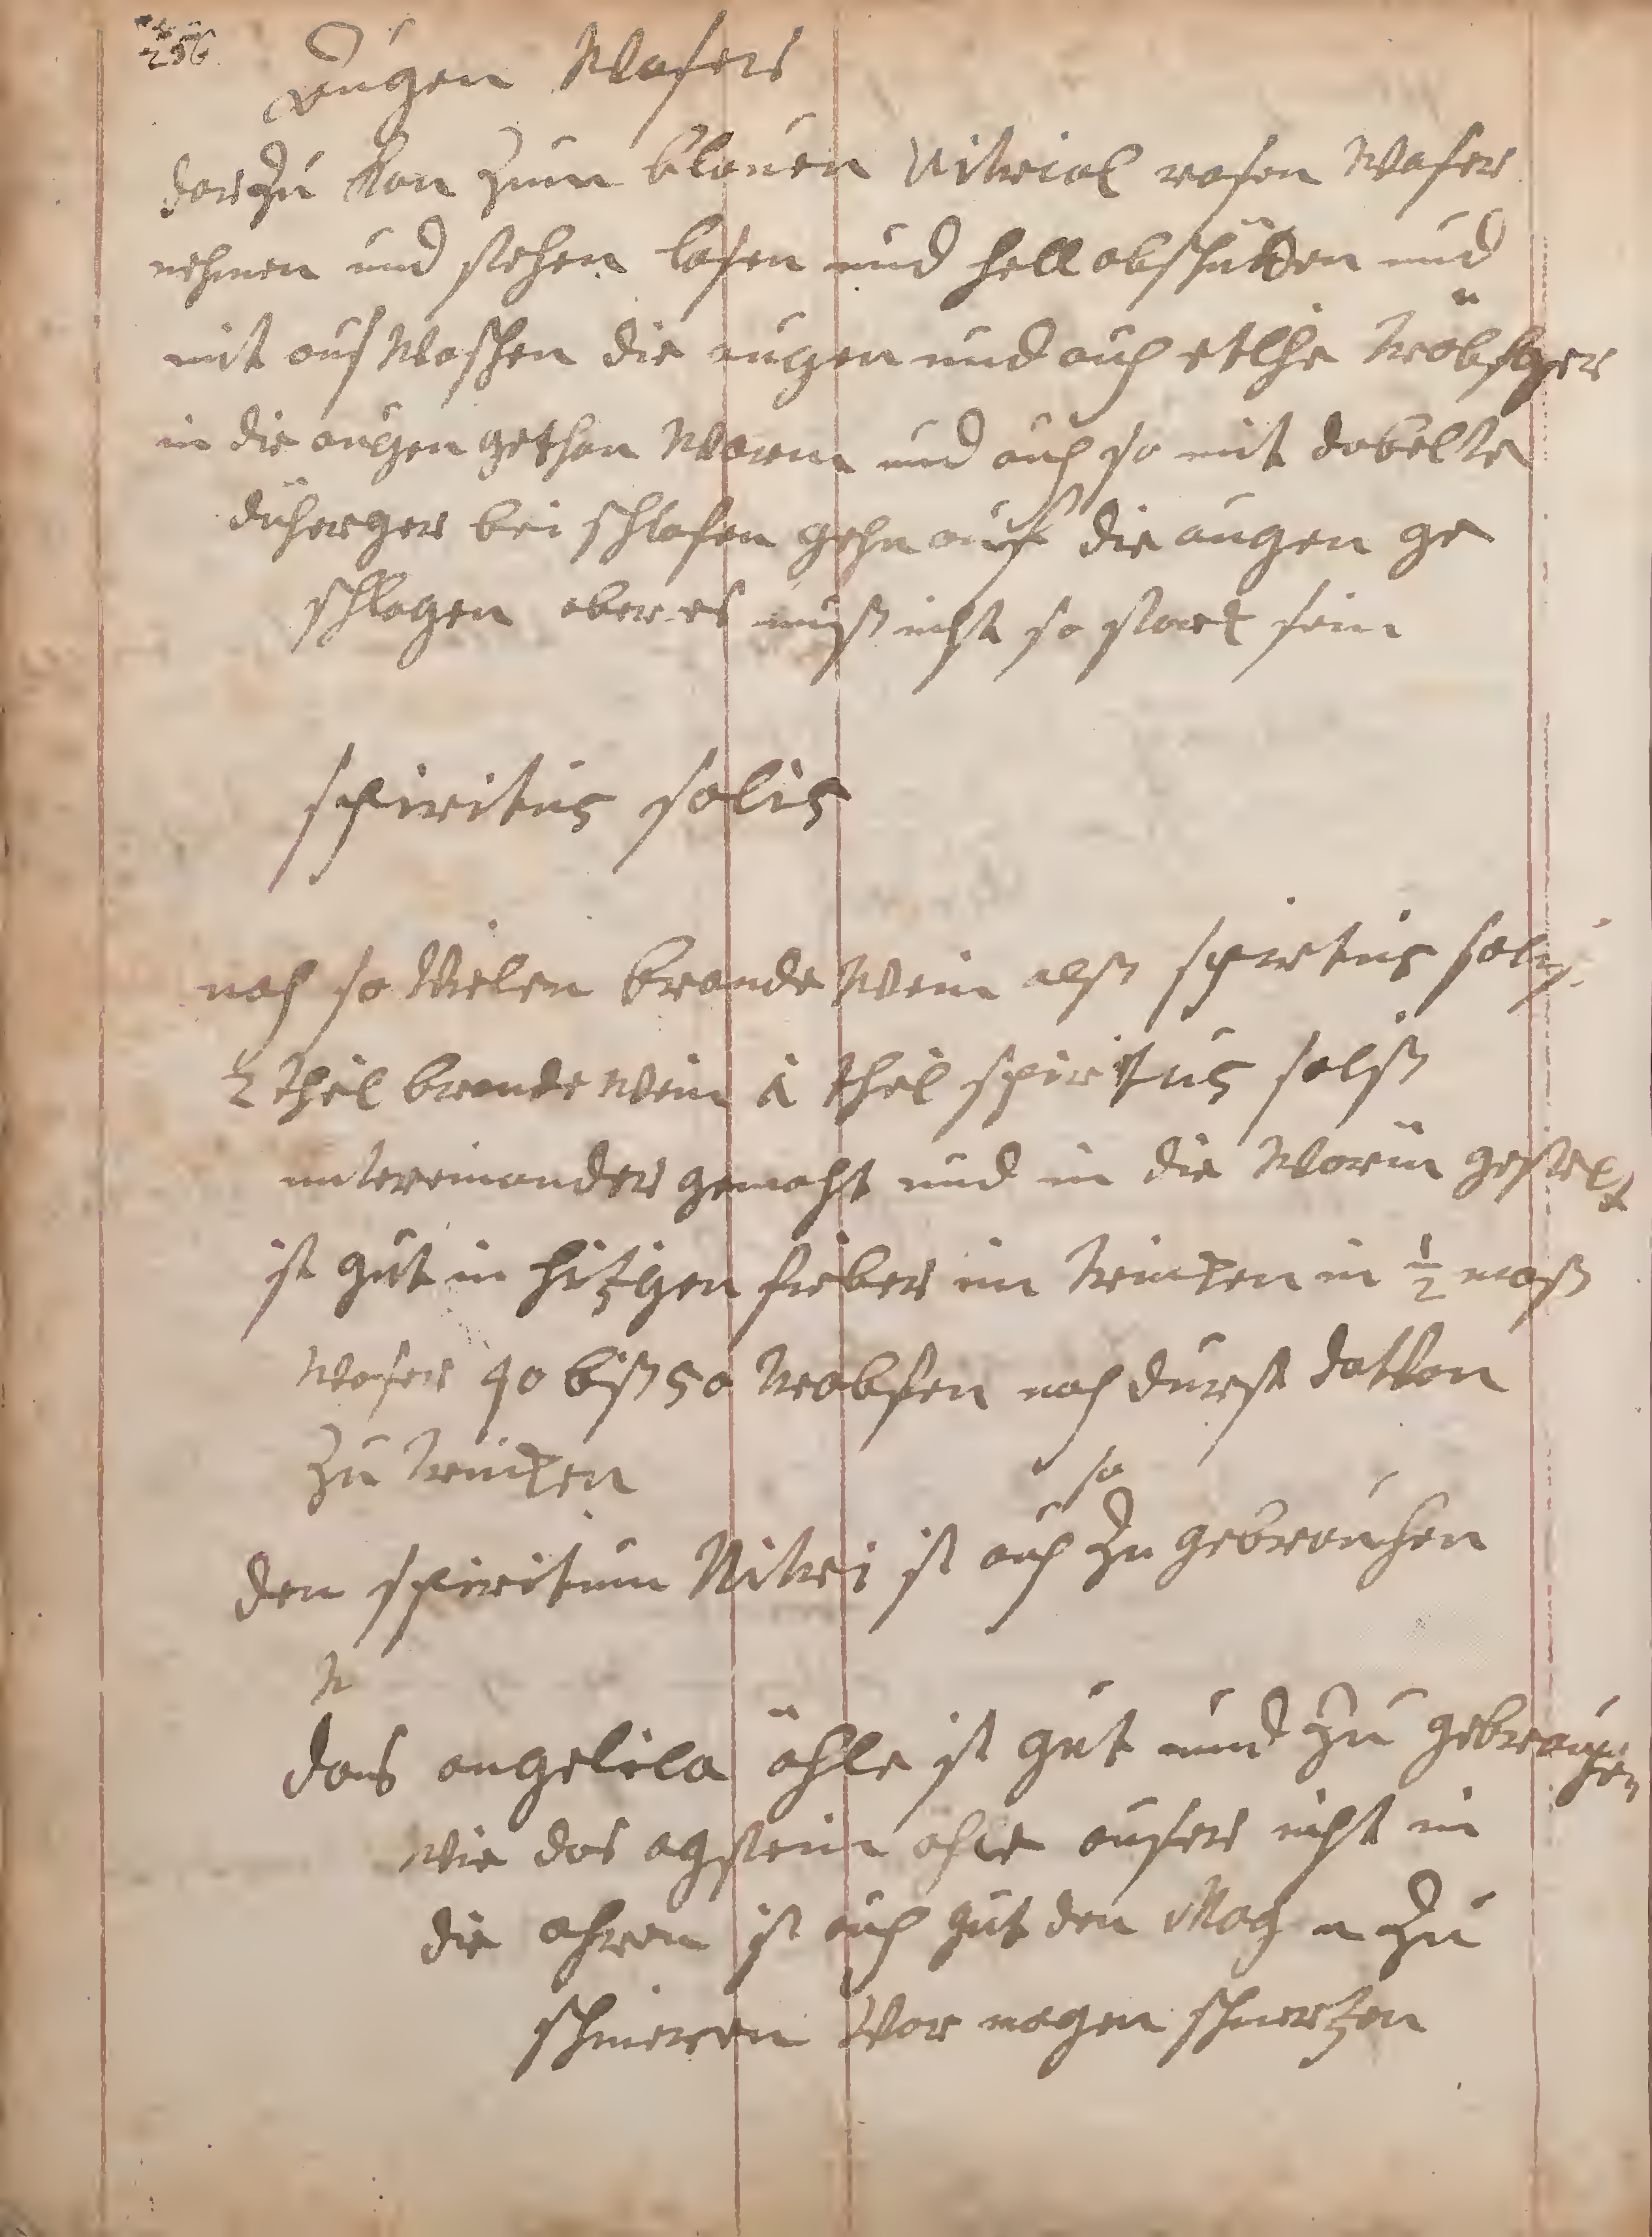 256
augen Waser
darzu kan zum blauen Vitriol rosen Waser
nehmen und stehen lasen und hell abschütten und
mit auß Waschen die augen und auch etlche tröbfger
in die augen gethan Warm und auch so mit dobelte
düherger bei schlafen gehn auf die augen ge
schlagen aber es muß nicht so starck sein
spiritus salis
noch so Vielen brande Wein alß spirtus salis
2 theil brande Wein 1 theil spiritus salß
untereinander gemacht und in die Warm gestelt
ist gut in hitzgen fieber im trincken in ½ maß
Waser 40 biß 50 trobfen nach durst datVon
zu trincken
so
den spiritum Nitri ist auch zu gebrauchen
das angelica öhle ist gut und zu gebrauchen
wie das agstein öhle auser nicht in
die ohren ist auch gut den Mag n zu
schmieren Vor magen schmertzen